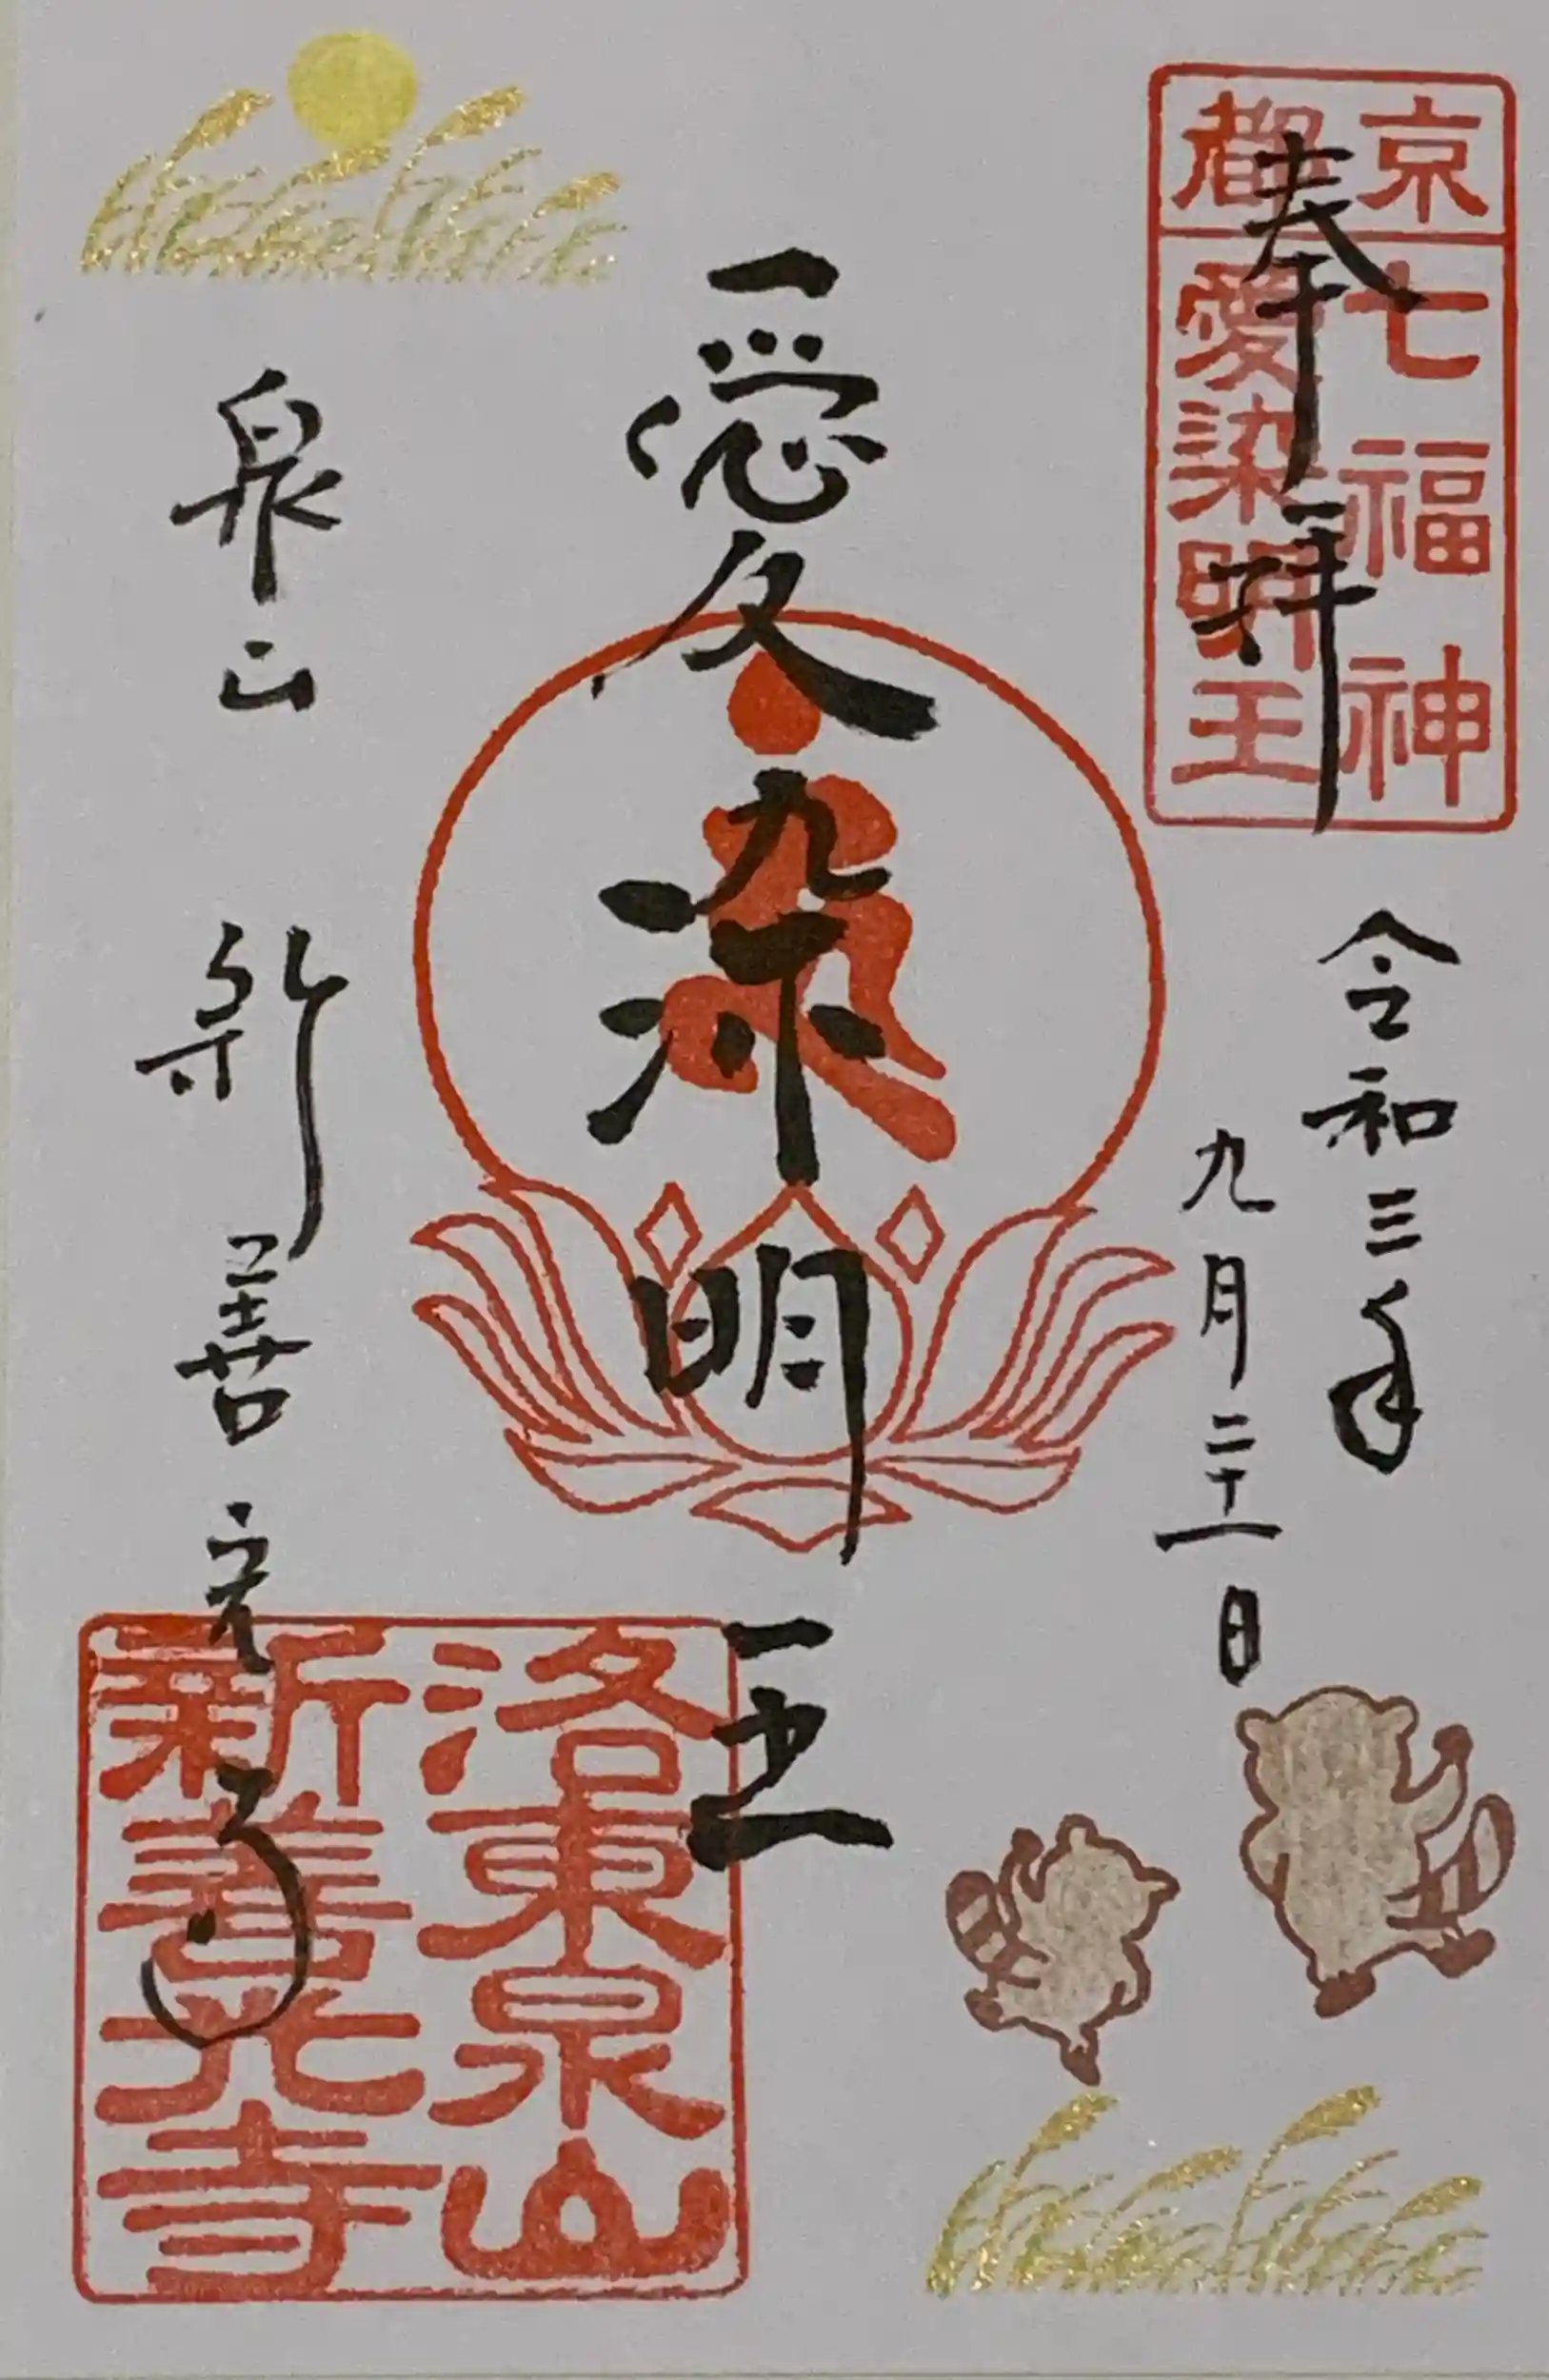 京都
七福神
愛染明王
奉拝
令和三年
九月二十一日
愛染明王
泉山
新善光寺
洛東泉山
新善光寺